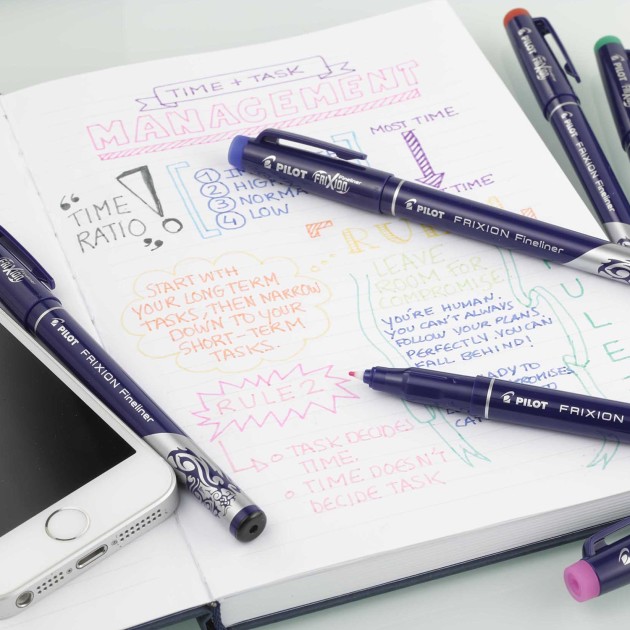 TIME + TASK
MANAGEMENT
"TIME
RATIO"
!
1
2 HIGH
3 NORMA
4 LOW
MOST TIME
TIME
START WTH
YOUR LONG TERM
TASKS, THEN NARROW
DOWN TO YOUR
SHORT-TERM
TASKS.
LEAVE
ROOM FOR
COMPROMISE
YOU'RE HUMAN.
YOU CAN'T ALWAYS
FOLLOW YOUR PLANS
PERFECTLY. YOU CAN
FALL BEHIND!
RULE 2
TASK DECIDES
TIME.
TIME DOESN'T
DECIDE TASK
PILOT FRIXION Fineliner
PILOT FRIXION Fineliner
FRIXION Fineliner
PILOT FRIXION Fineliner
PILOT FRIXION
PILOT FRIXION Fineliner
PILOT